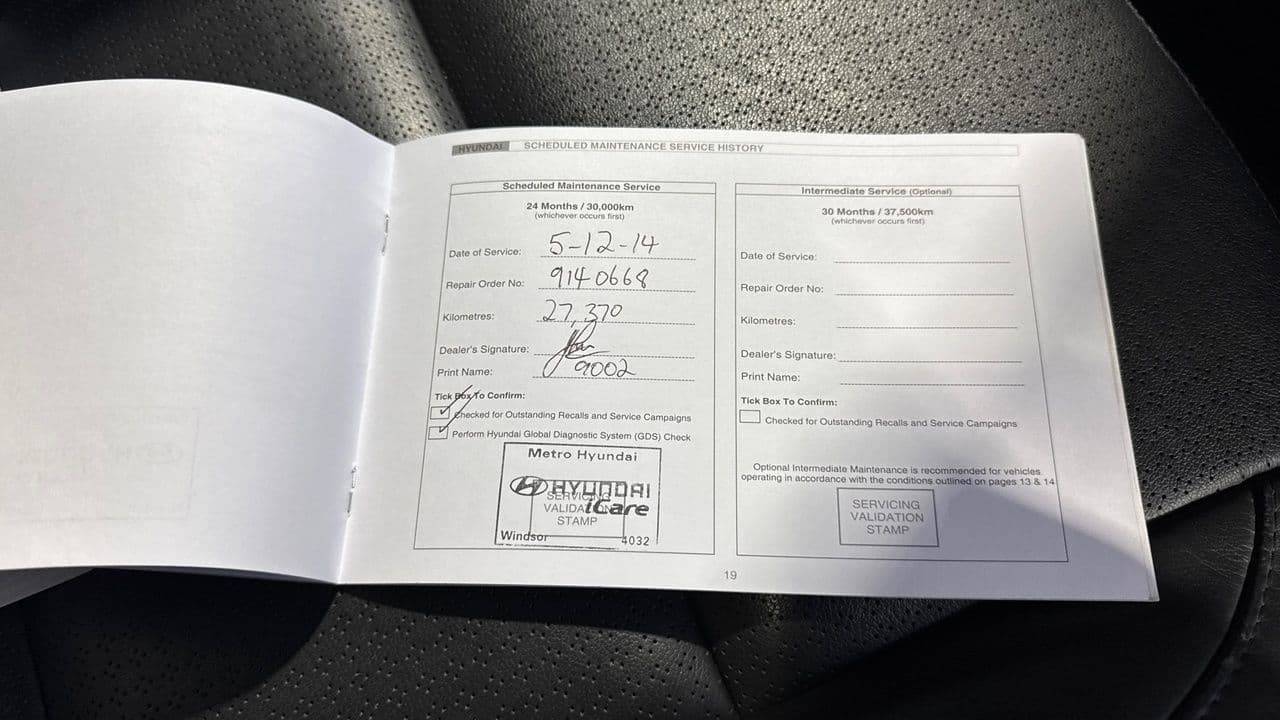 HYUNDAI SCHEDULED MAINTENANCE SERVICE HISTORY
Scheduled Maintenance Service
24 Months / 30,000km
(whichever occurs first)
Date of Service: 5-12-14
Repair Order No: 9140668
Kilometres: 27,370
Dealer's Signature:
Print Name: 9002
Tick Box To Confirm:
Checked for Outstanding Recalls and Service Campaigns
Perform Hyundai Global Diagnostic System (GDS) Check
Metro Hyundai
HYUNDAI
iCare
SERVICING
VALIDATION
STAMP
Windsor 4032
Intermediate Service (Optional)
30 Months / 37,500km
(whichever occurs first)
Date of Service:
Repair Order No:
Kilometres:
Dealer's Signature:
Print Name:
Tick Box To Confirm:
Checked for Outstanding Recalls and Service Campaigns
Optional Intermediate Maintenance is recommended for vehicles
operating in accordance with the conditions outlined on pages 13 & 14
SERVICING
VALIDATION
STAMP
19